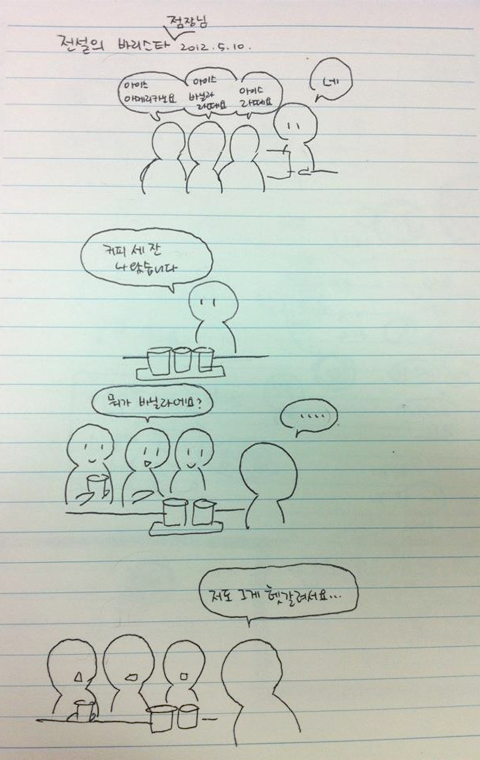 점장님
전설의 바리스타 2012.5.10.
아이스
아메리카노요
아이스
바닐라
라떼요
아이스
라떼요
네
커피 세 잔
나왔습니다
뭐가 바닐라에요?
....
저도 그게 헷갈려서요...